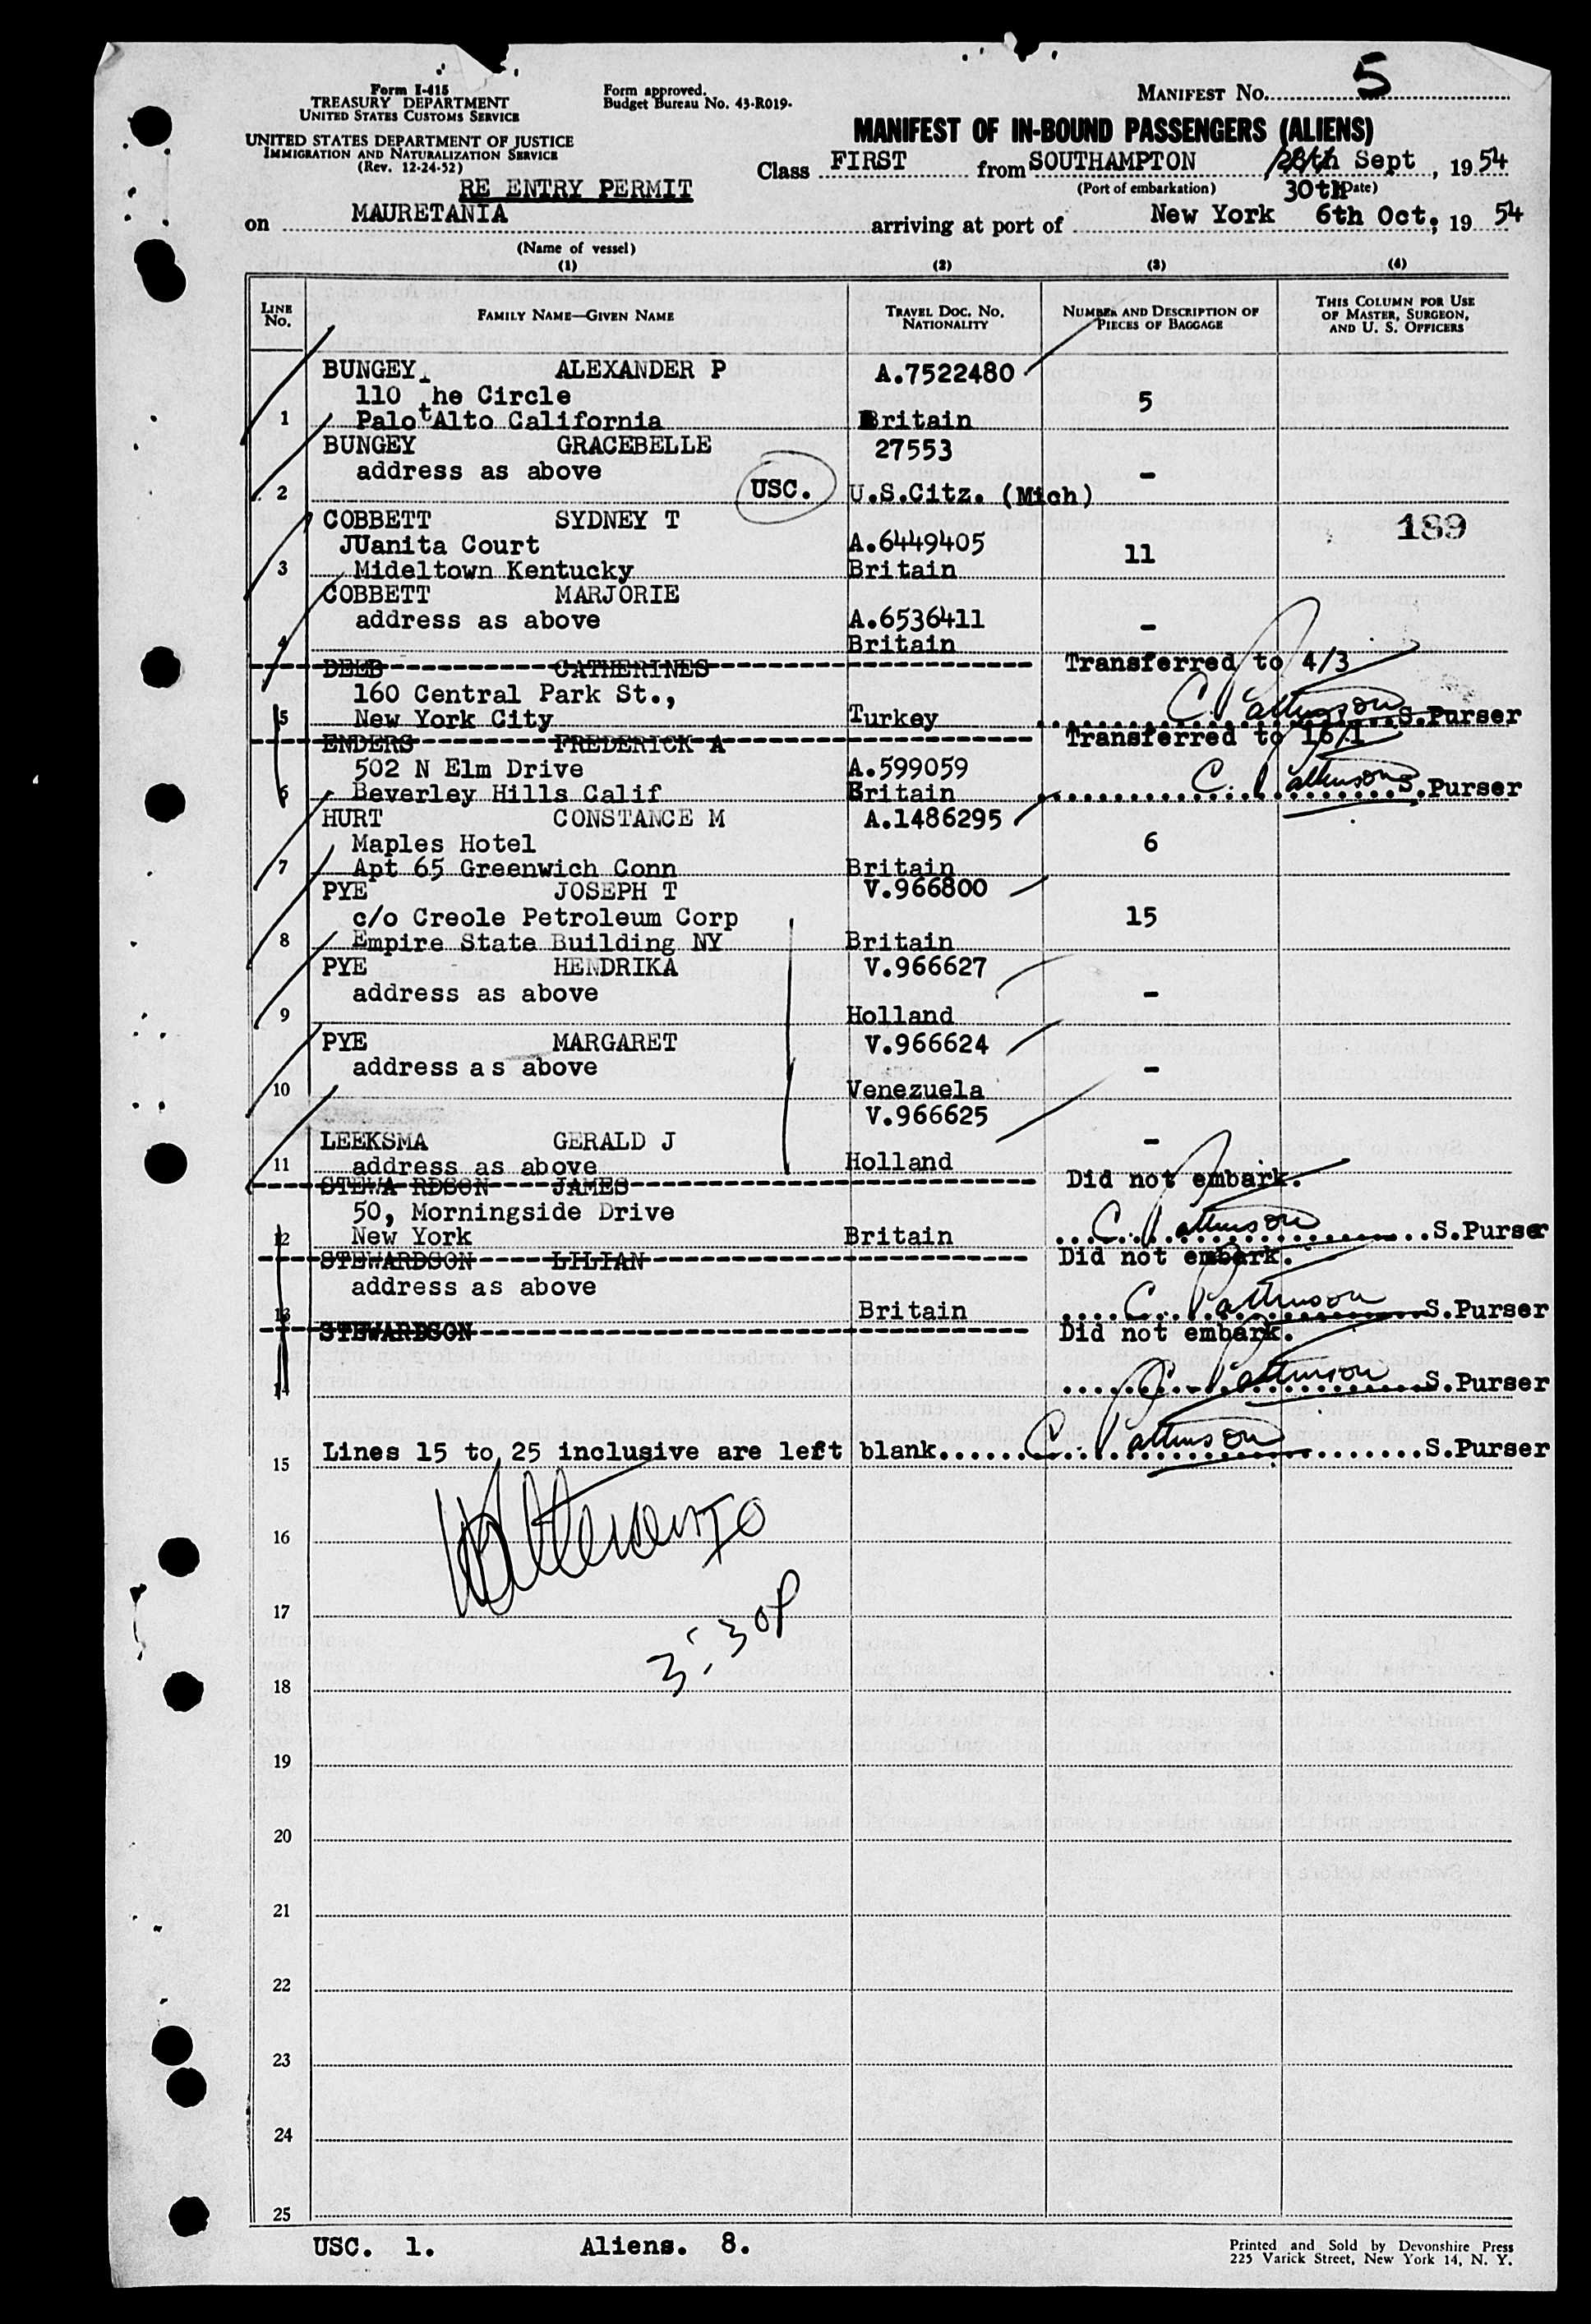 Form I-415
TREASURY DEPARTMENT
UNITED STATES CUSTOMS SERVICE
UNITED STATES DEPARTMENT OF JUSTICE
IMMIGRATION AND NATURALIZATION SERVICE
(Rev. 12-24-52)
RE ENTRY PERMIT
Form approved.
Budget Bureau No. 43-R019.
MANIFEST NO. 5
MANIFEST OF IN-BOUND PASSENGERS (ALIENS)
Class FIRST from SOUTHAMPTON 28th Sept, 1954
(Port of embarkation) 30th (Date)
on MAURETANIA arriving at port of New York 6th Oct, 1954
(Name of vessel)
(1) (2) (3) (4)
LINE NO.
FAMILY NAME—GIVEN NAME
TRAVEL DOC. NO. NATIONALITY
NUMBER AND DESCRIPTION OF PIECES OF BAGGAGE
THIS COLUMN FOR USE OF MASTER, SURGEON, AND U. S. OFFICERS
BUNGEY. ALEXANDER P A.7522480
110 the Circle 5
1 Palo Alto California Britain
BUNGEY GRACEBELLE 27553
address as above -
2 USC. U.S.Citz. (Mich)
COBBETT SYDNEY T 189
JUanita Court A.6449405 11
3 Mideltown Kentucky Britain
COBBETT MARJORIE
address as above A.6536411 -
4 Britain
DEEB CATHERINES Transferred to 4/3
160 Central Park St.,
5 New York City Turkey C. Pattinson S.Purser
ENDERS FREDERICK A Transferred to 16/1
502 N Elm Drive A.599059
6 Beverley Hills Calif Britain C. Pattinson S.Purser
HURT CONSTANCE M A.1486295
Maples Hotel 6
7 Apt 65 Greenwich Conn Britain
PYE JOSEPH T V.966800
c/o Creole Petroleum Corp 15
8 Empire State Building NY Britain
PYE HENDRIKA V.966627
address as above -
9 Holland
PYE MARGARET V.966624
address as above -
10 Venezuela
V.966625
LEEKSMA GERALD J -
11 address as above Holland
STEWA RDSON JAMES Did not embark.
50, Morningside Drive
12 New York Britain C. Pattinson S.Purser
STEWARDSON LILIAN Did not embark.
address as above
13 Britain C. Pattinson S.Purser
STEWARDSON Did not embark.
14 C. Pattinson S.Purser
15 Lines 15 to 25 inclusive are left blank...... C. Pattinson S.Purser
16
17
3:30P
18
19
20
21
22
23
24
25
USC. 1. Aliens. 8.
Printed and Sold by Devonshire Press
225 Varick Street, New York 14, N. Y.